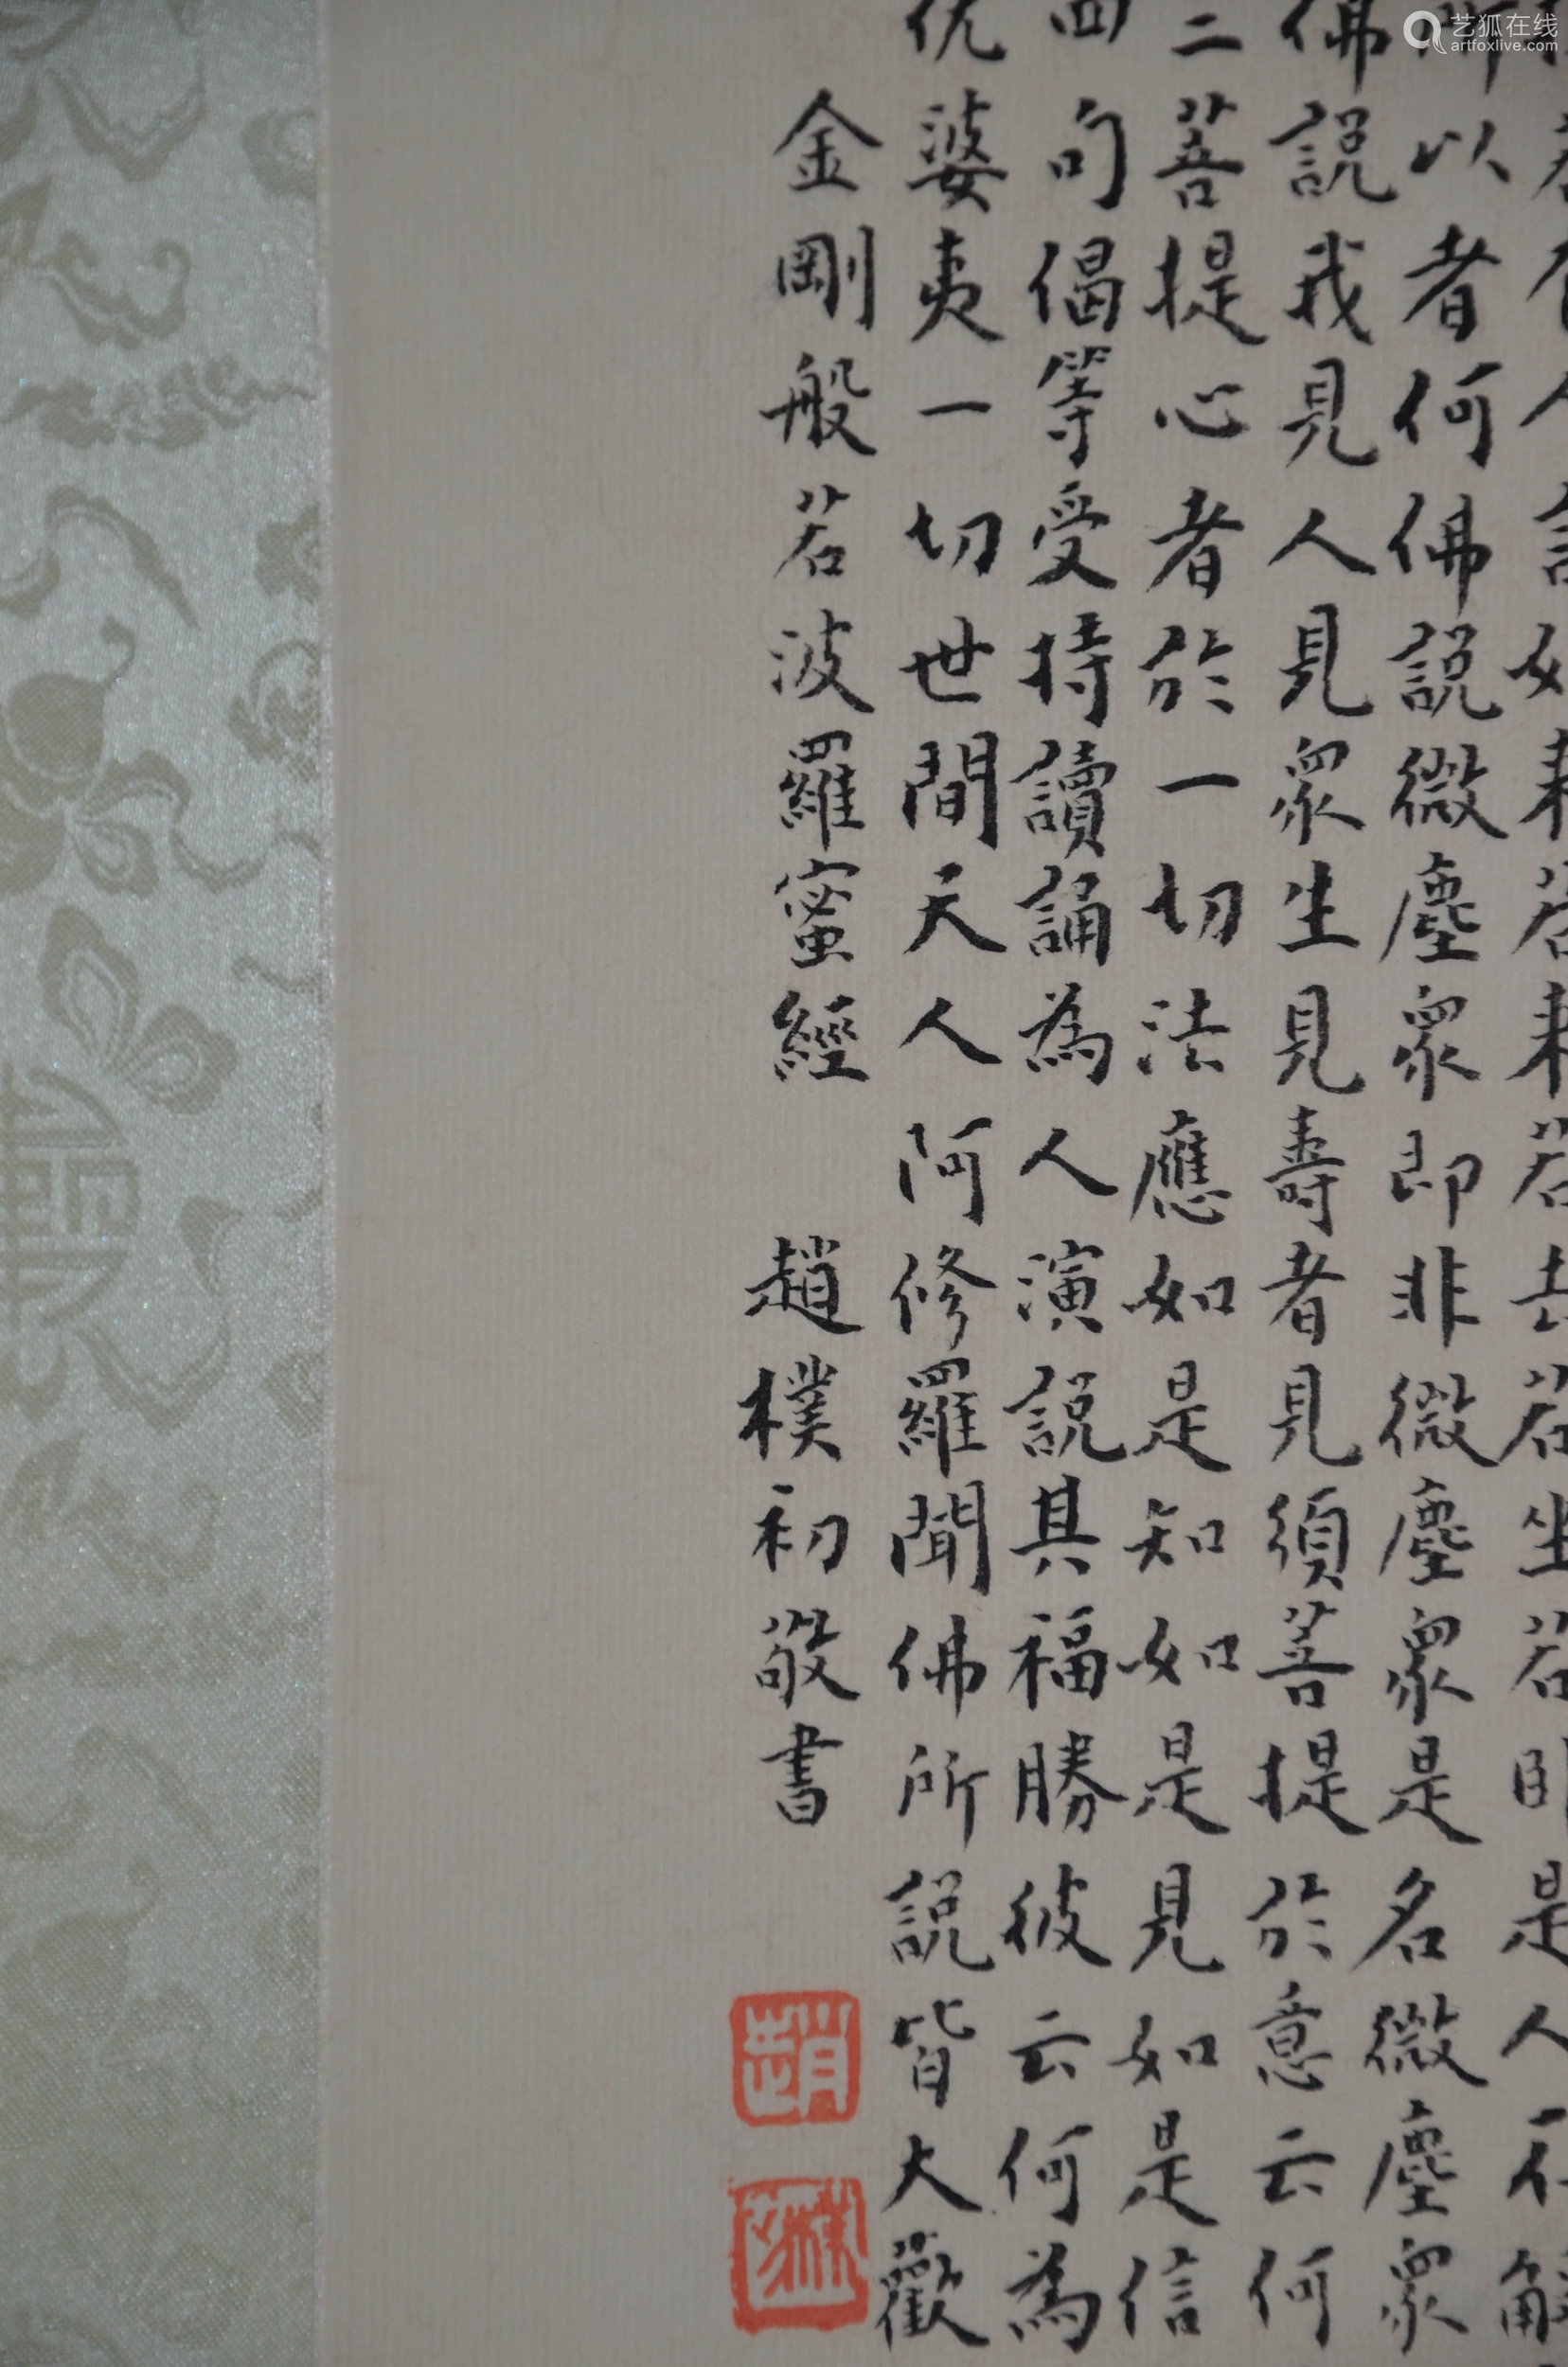 艺狐在线
artfoxlive.com
以者何佛說微塵眾即非微塵眾是名微塵眾
佛說我見人見眾生見壽者見須菩提於意云何
三菩提心者於一切法應如是知如是見如是信
四句偈等受持讀誦為人演說其福勝彼云何為
優婆夷一切世間天人阿修羅聞佛所說皆大歡
金剛般若波羅蜜經 趙樸初敬書
趙